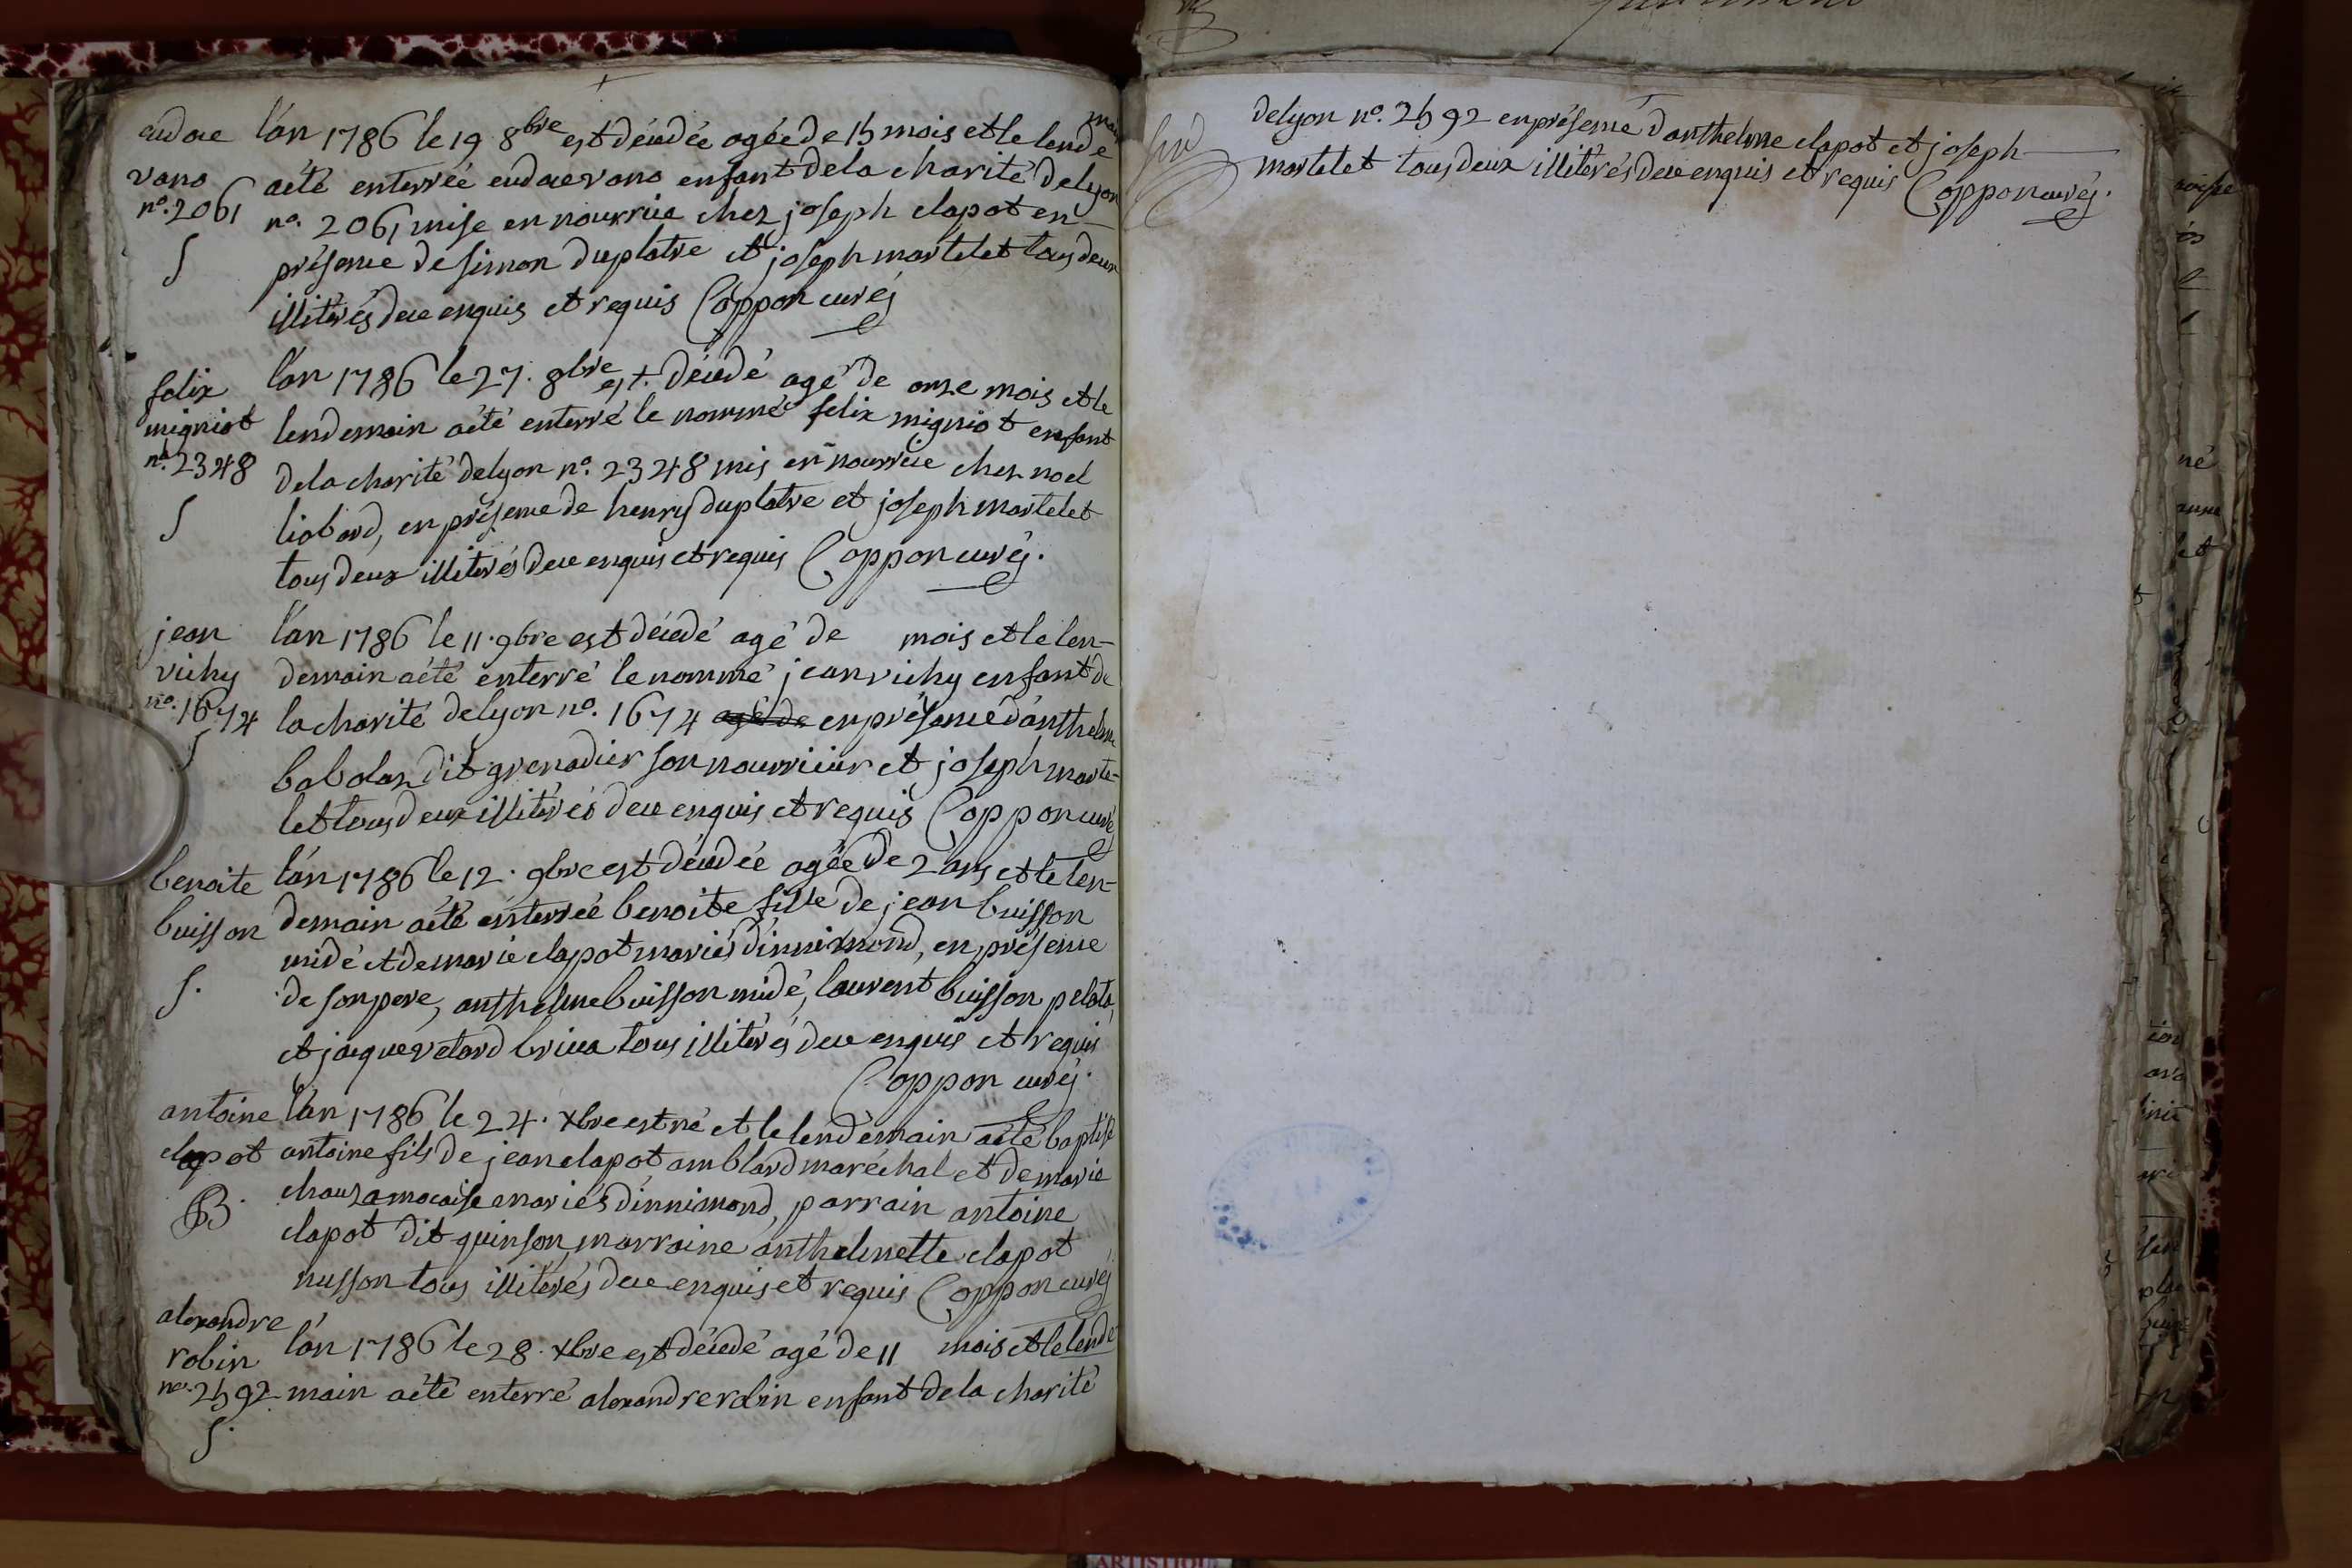 eudoce
vano
n°. 2061
S
l'an 1786 le 19 8bre est décédée agée de 15 mois et le lendemain
aété enterrée eudoce vano enfant de la charité de lyon
n°. 2061 mise en nourrice chez joseph clapot en
présence de simon duplatre et joseph martelet tous deux
illitérés de ce enquis et requis Coppon curé
felix
migniot
n°. 2348
S
l'an 1786 le 27. 8bre est. décédé agé de onze mois et le
lendemain aété enterré le nommé felix migniot enfant
de la charité de lyon n°. 2348 mis en nourrice chez noel
liobard, en présence de henry duplatre et joseph martelet
tous deux illitérés de ce enquis et requis Coppon curé.
jean
vichy
n°. 1674
S
l'an 1786 le 11. 9bre est décédé agé de mois et le len-
demain aété enterré le nommé jean vichy enfant de
la charité de lyon n°. 1674 agé de en présence d'anthelme
babolan dit grenadier son nourricier et joseph marte-
let tous deux illitérés de ce enquis et requis Coppon curé
benoite
buisson
S.
l'an 1786 le 12. 9bre est décédée agée de 2 ans et le len-
demain aété enterrée benoite fille de jean buisson
midé et de marie clapot mariés d'innimond, en présence
de son pere, anthelme buisson midé, laurent buisson
et jacque retord tous illitérés de ce enquis et requis
Coppon curé.
antoine
clapot
B.
l'an 1786 le 24. xbre est né et le lendemain aété baptisé
antoine fils de jean clapot amblard maréchal et de marie
mariés d'innimond, parrain antoine
clapot dit quinson, marraine anthelmette clapot
musson tous illitérés de ce enquis et requis Coppon curé
alexandre
robin
n°. 2592
S.
l'an 1786 le 28. xbre est décédé agé de 11 mois et le lende
main aété enterré alexandre robin enfant de la charité
de lyon n°. 2592 en présence d'anthelme clapot et joseph
martelet tous deux illitérés de ce enquis et requis Coppon curé.